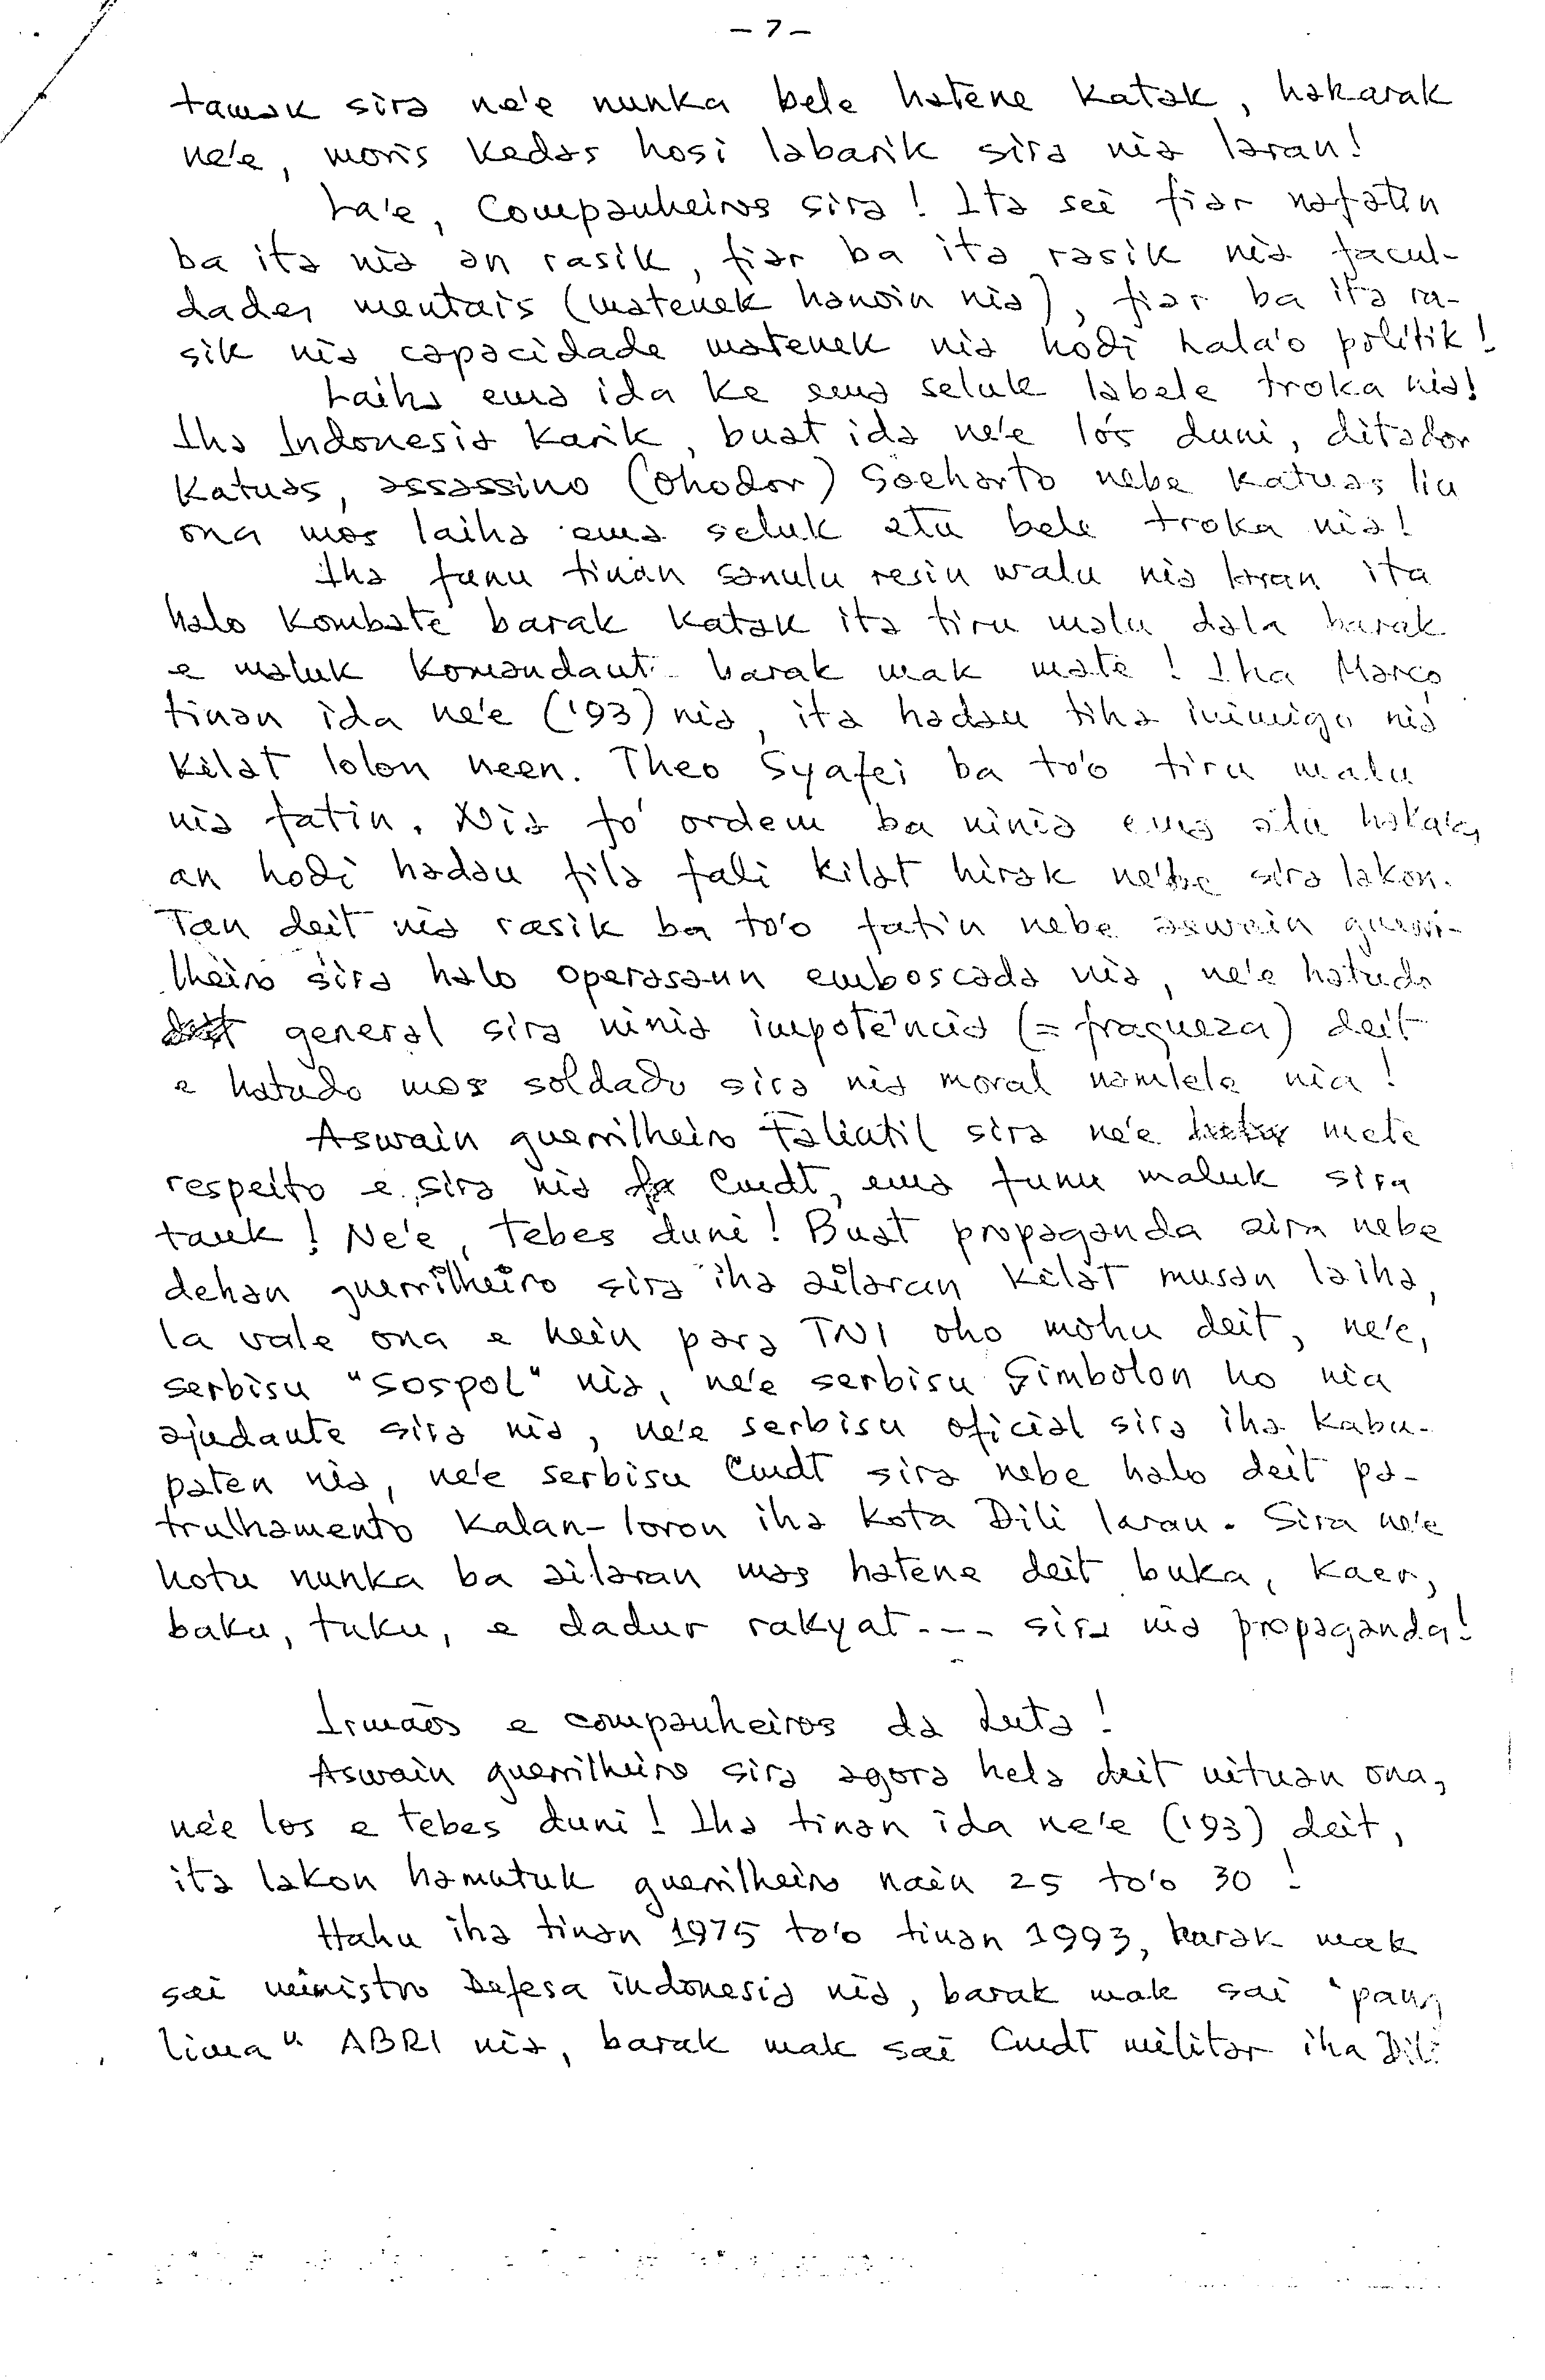 - 7 -
tamak sira ne'e nunka bele hatene katak, hakarak
ne'e, moris kedas hosi labarik sira nia laran!
La'e, Companheiros sira! Ita sei fiar nafatin
ba ita nia an rasik, fiar ba ita rasik nia facul-
dades mentais (matenek hanoin nia), fiar ba ita ra-
sik nia capacidade matenek nia hodi hala'o politik!
Laiha ema ida ke ema seluk labele troka nia!
Iha Indonesia karik, buat ida ne'e lo's duni, ditador
katuas, assassino (ohodor) Soeharto nebe katuas liu
ona mos laiha ema seluk atu bele troka nia!
Iha funu tinan sanulu resin walu nia laran ita
halo kombate barak katak ita tiru malu dala barak
e maluk komandante barak mak mate! Iha Março
tinan ida ne'e ('93) nia, ita hadau tiha inimigo nia
kilat lolon neen. Theo Syafei ba to'o tiru malu
nia fatin. Nia fo' ordem ba ninia ema atu hakaka
an hodi hadau fila fali kilat hirak ne'be sira lakon.
Tan deit nia rasik ba to'o fatin nebe aswain guerri-
lheiro sira halo operasaun emboscada nia, ne'e hatudo
general sira ninia impotência (= fraqueza) deit
e hatudo mos soldado sira nia moral namlele nia!
Aswain guerrilheiro Falintil sira ne'e mete
respeito e sira nia Cmdt, ema funu maluk sira
tauk! Ne'e, tebes duni! Buat propaganda sira nebe
dehan guerrilheiro sira iha ailaran kilat musan laiha,
la vale ona e hein para TNI oho mohu deit, ne'e,
serbisu "SOSPOL" nia, ne'e serbisu Simbolon ho nia
ajudante sira nia, ne'e serbisu oficial sira iha kabu-
paten nia, ne'e serbisu Cmdt sira nebe halo deit pa-
trulhamento kalan-loron iha kota Dili laran. Sira ne'e
hotu nunka ba ailaran mas hatene deit buka, kaer,
baku, tuku, e dadur rakyat --- sira nia propaganda!
Irmãos e companheiros da Luta!
Aswain guerrilheiro sira agora hela deit uituan ona,
ne'e los e tebes duni! Iha tinan ida ne'e ('93) deit,
ita lakon hamutuk guerrilheiro nain 25 to'o 30!
Hahu iha tinan 1975 to'o tinan 1993, barak mak
sai ministro Defesa indonesia nia, barak mak sai "pang
lima" ABRI nia, barak mak sai Cmdt militar iha Dili